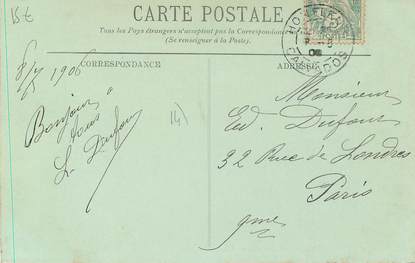 15 €
CARTE POSTALE
Tous les Pays étrangers n'acceptent pas la Correspondance
(Se renseigner à la Poste).
8/7 1906
CORRESPONDANCE
ADRESSE
HONFLEUR
Bonjour à
tous
L. Dufour
14
Monsieur
Ed. Dufour
32 Rue de Londres
Paris
9me